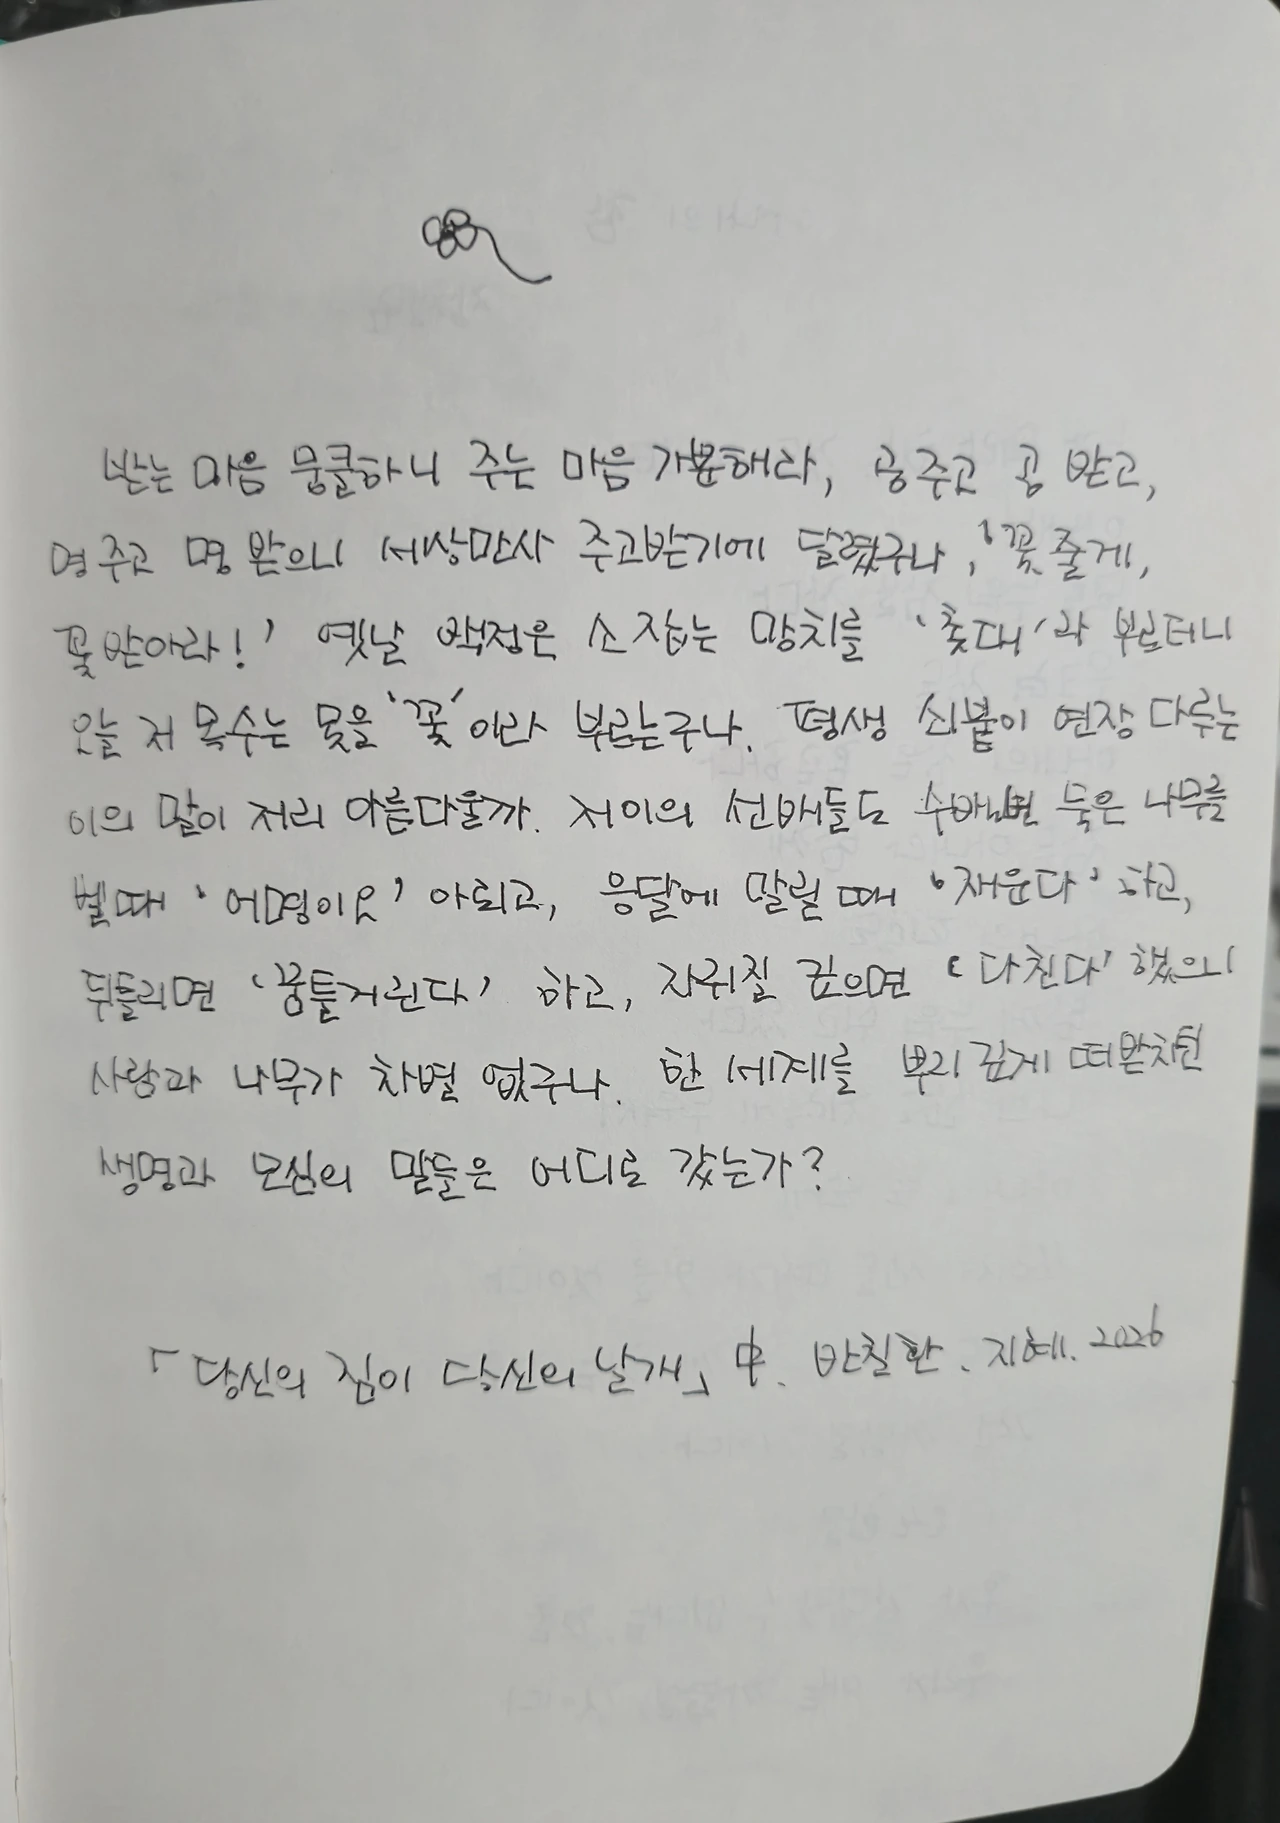 받는 마음 뭉클하니 주는 마음 개운해라, 공주고 공 받고,
명주고 명 받으니 세상만사 주고받기에 달렸구나, '꽃 줄게,
꽃 받아라!' 옛날 백정은 소 잡는 망치를 '촛대'라 부르더니
오늘 저 목수는 못을 '꽃'이라 부르는구나. 평생 쇠붙이 연장 다루는
이의 말이 저리 아름다울까. 저이의 선배들도 수백 년 묵은 나무를
벨 때 '어명이오' 아뢰고, 응달에 말릴 때 '재운다' 하고,
뒤틀리면 '꿈틀거린다' 하고, 자귀질 깊으면 '다친다' 했으니
사람과 나무가 차별 없구나. 한 세계를 뿌리 깊게 떠받치던
생명과 모심의 말들은 어디로 갔는가?
「당신의 짐이 당신의 날개」 中. 반칠환. 지혜. 2026